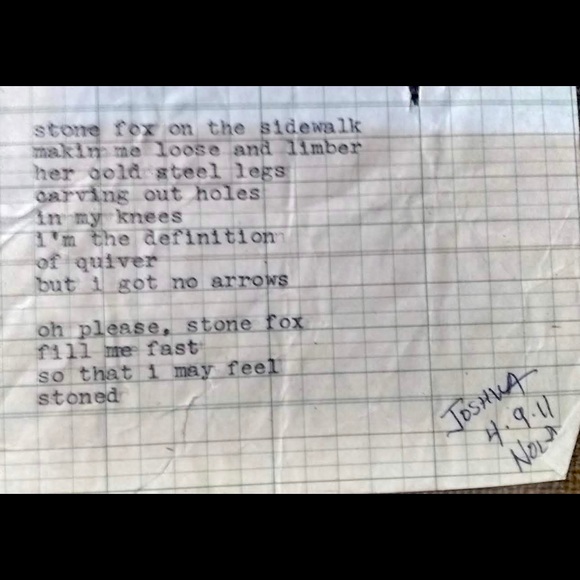 stone fox on the sidewalk
makin me loose and limber
her cold steel legs
carving out holes
in my knees
i'm the definition
of quiver
but i got no arrows
oh please, stone fox
fill me fast
so that i may feel
stoned
JOSHUA
4.9.11
NOLA